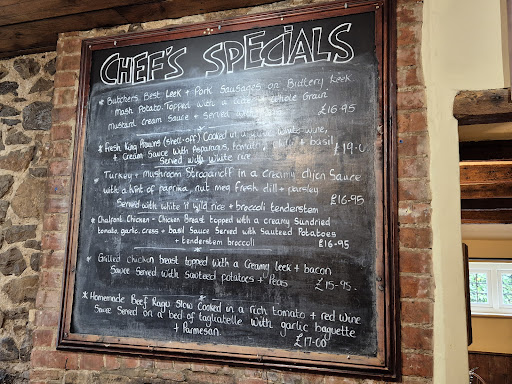 CHEF'S SPECIALS
* Butchers Best Leek + Pork Sausages on Buttery Leek
mash Potato. Topped with a Whole Grain
mustard cream Sauce + Served with £16.95
* Fresh King Prawns (shell-off) Cooked in a white wine,
+ Cream Sauce with Asparagus, tomato, + basil £19.0
Served with white rice
* Turkey + mushroom Stroganoff in a Creamy dijon Sauce
with a hint of paprika, nut meg fresh dill + parsley
Served with white + wild rice + broccoli tenderstem £16.95
* Chalfont Chicken - Chicken Breast topped with a creamy Sundried
tomato, garlic, cress + basil Sauce Served with Sauteed Potatoes
+ tenderstem broccoli £16.95
* Grilled Chicken breast topped with a Creamy leek + bacon
Sauce Served with Sauteed potatoes + Peas £15-95.
* Homemade Beef Ragu Slow Cooked in a rich tomato + red wine
Sauce Served on a bed of tagliatelle with garlic baguette
+ Parmesan £17.00